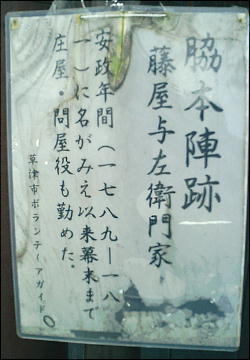 脇本陣跡
藤屋与左衛門家
安政年間(一七八九―一八
一一)に名がみえ以来幕末まで
庄屋・問屋役も勤めた。
草津市ボランティアガイド